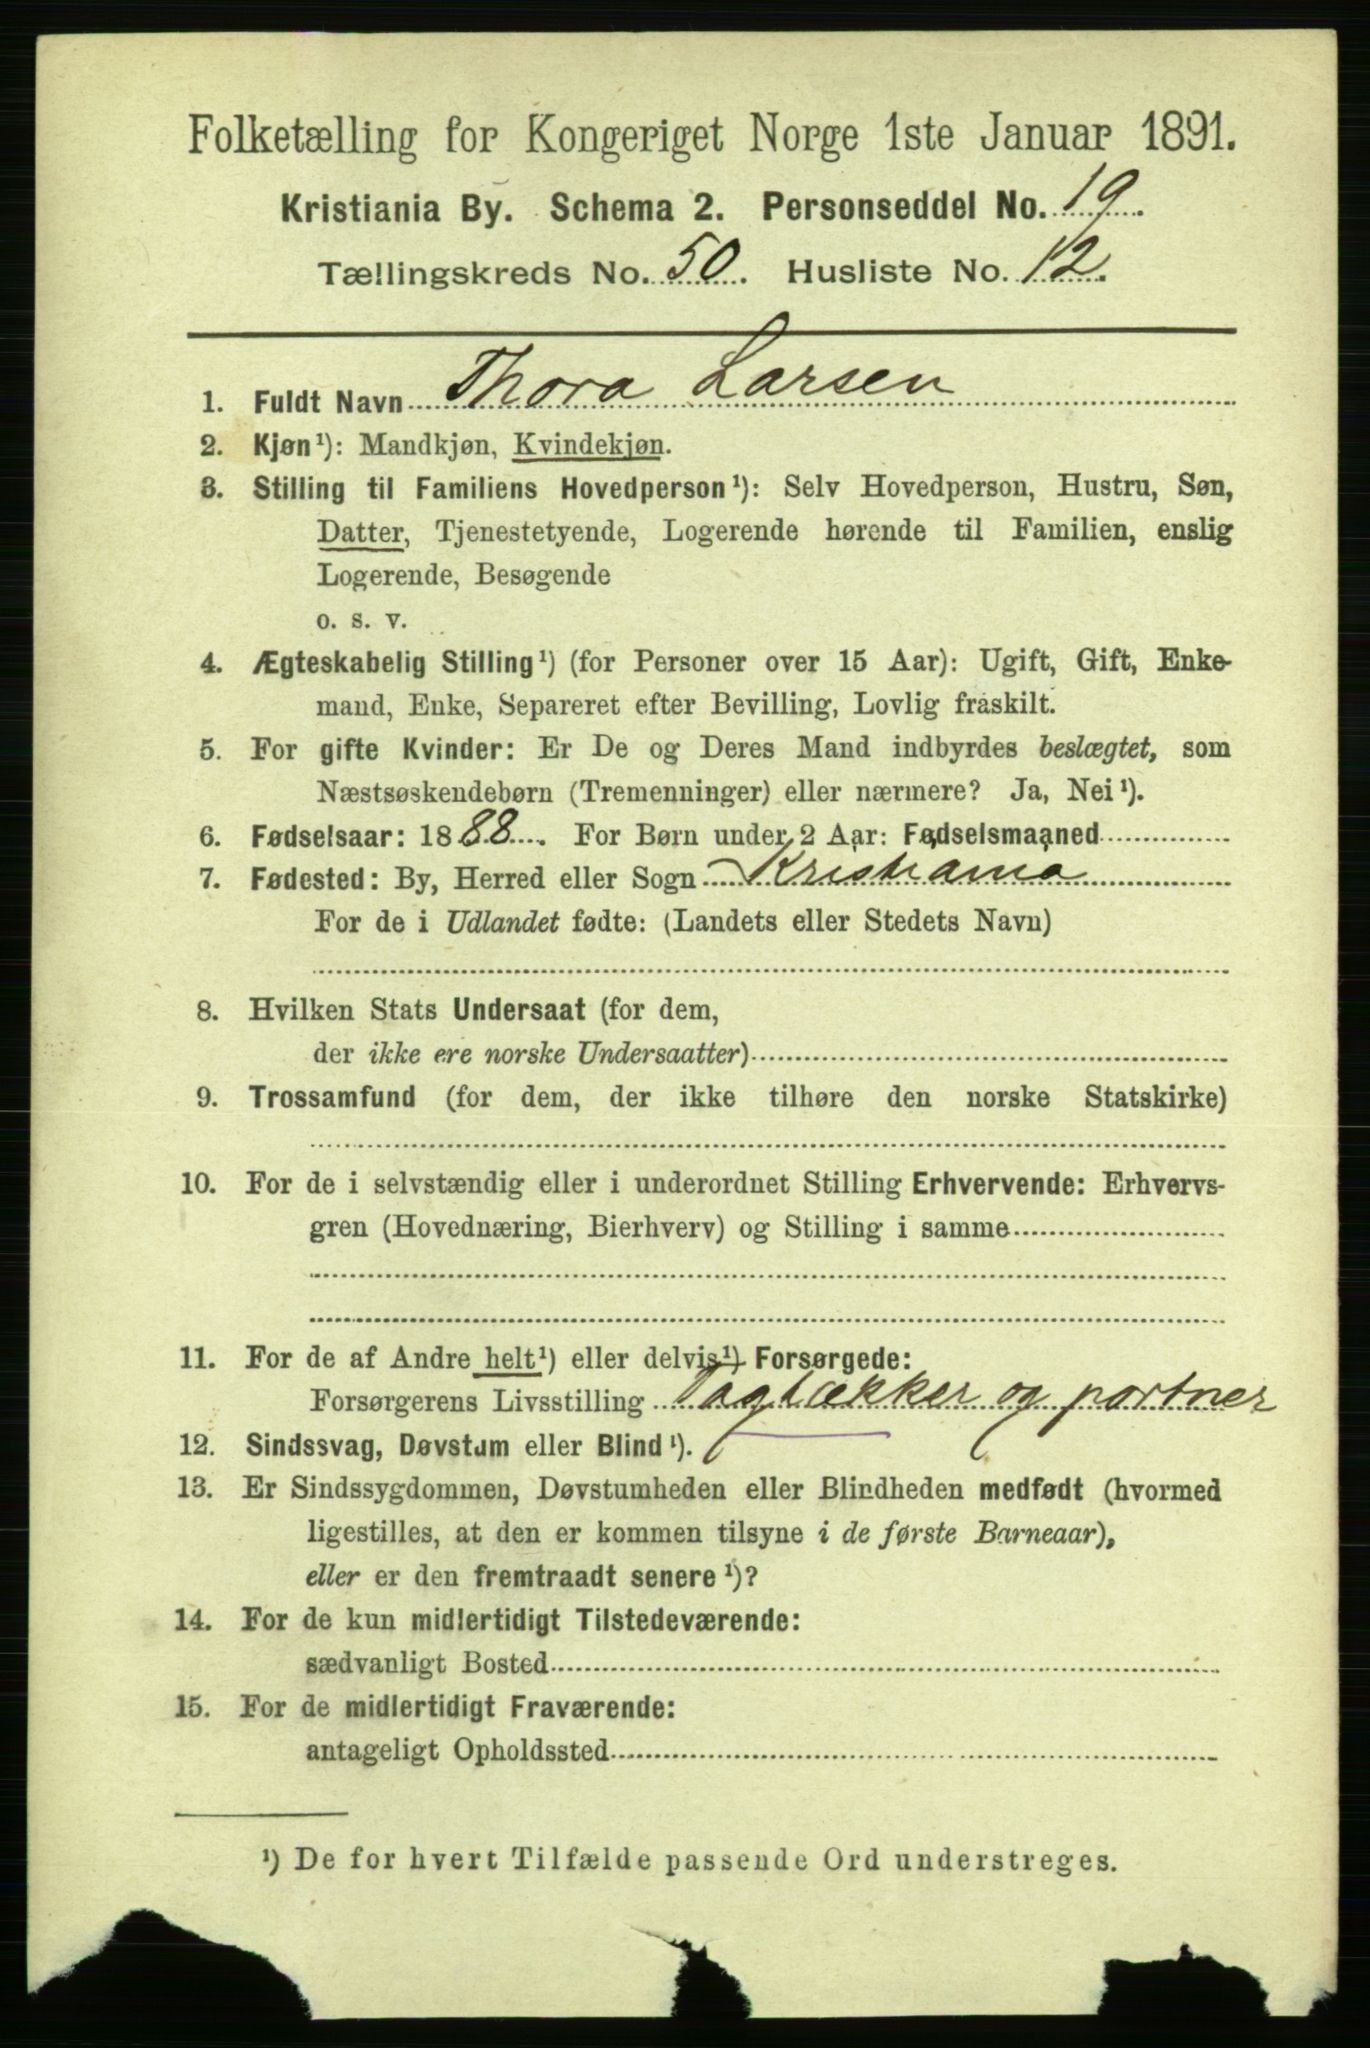 Folketælling for Kongeriget Norge 1ste Januar 1891.
Kristiania By. Schema 2. Personseddel No. 19
Tællingskreds No. 50. Husliste No. 12.
1. Fuldt Navn Thora Larsen
2. Kjøn¹): Mandkjøn, Kvindekjøn.
3. Stilling til Familiens Hovedperson¹): Selv Hovedperson, Hustru, Søn,
Datter, Tjenestetyende, Logerende hørende til Familien, enslig
Logerende, Besøgende
o. s. v.
4. Ægteskabelig Stilling¹) (for Personer over 15 Aar): Ugift, Gift, Enke-
mand, Enke, Separeret efter Bevilling, Lovlig fraskilt.
5. For gifte Kvinder: Er De og Deres Mand indbyrdes beslægtet, som
Næstsøskendebørn (Tremenninger) eller nærmere? Ja, Nei¹).
6. Fødselsaar: 1888. For Børn under 2 Aar: Fødselsmaaned
7. Fødested: By, Herred eller Sogn Kristiania
For de i Udlandet fødte: (Landets eller Stedets Navn)
8. Hvilken Stats Undersaat (for dem,
der ikke ere norske Undersaatter)
9. Trossamfund (for dem, der ikke tilhøre den norske Statskirke)
10. For de i selvstændig eller i underordnet Stilling Erhvervende: Erhvervs-
gren (Hovednæring, Bierhverv) og Stilling i samme
11. For de af Andre helt¹) eller delvis¹) Forsørgede:
Forsørgerens Livsstilling Tagtækker og portner
12. Sindssvag, Døvstum eller Blind¹).
13. Er Sindssygdommen, Døvstumheden eller Blindheden medfødt (hvormed
ligestilles, at den er kommen tilsyne i de første Barneaar),
eller er den fremtraadt senere¹)?
14. For de kun midlertidigt Tilstedeværende:
sædvanligt Bosted
15. For de midlertidigt Fraværende:
antageligt Opholdssted
¹) De for hvert Tilfælde passende Ord understreges.